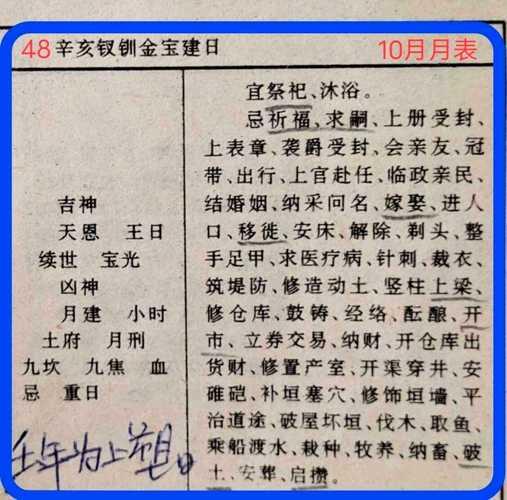 48 辛亥钗钏金宝建日
10月月表
吉神
天恩 王日
续世 宝光
凶神
月建 小时
土府 月刑
九坎 九焦 血
忌 重日
宜祭祀、沐浴。
忌祈福、求嗣、上册受封、
上表章、袭爵受封、会亲友、冠
带、出行、上官赴任、临政亲民、
结婚姻、纳采问名、嫁娶、进人
口、移徙、安床、解除、剃头、整
手足甲、求医疗病、针刺、裁衣、
筑堤防、修造动土、竖柱上梁、
修仓库、鼓铸、经络、酝酿、开
市、立券交易、纳财、开仓库出
货财、修置产室、开渠穿井、安
碓硙、补垣塞穴、修饰垣墙、平
治道途、破屋坏垣、伐木、取鱼、
乘船渡水、栽种、牧养、纳畜、破
土、安葬、启攒、
年为上